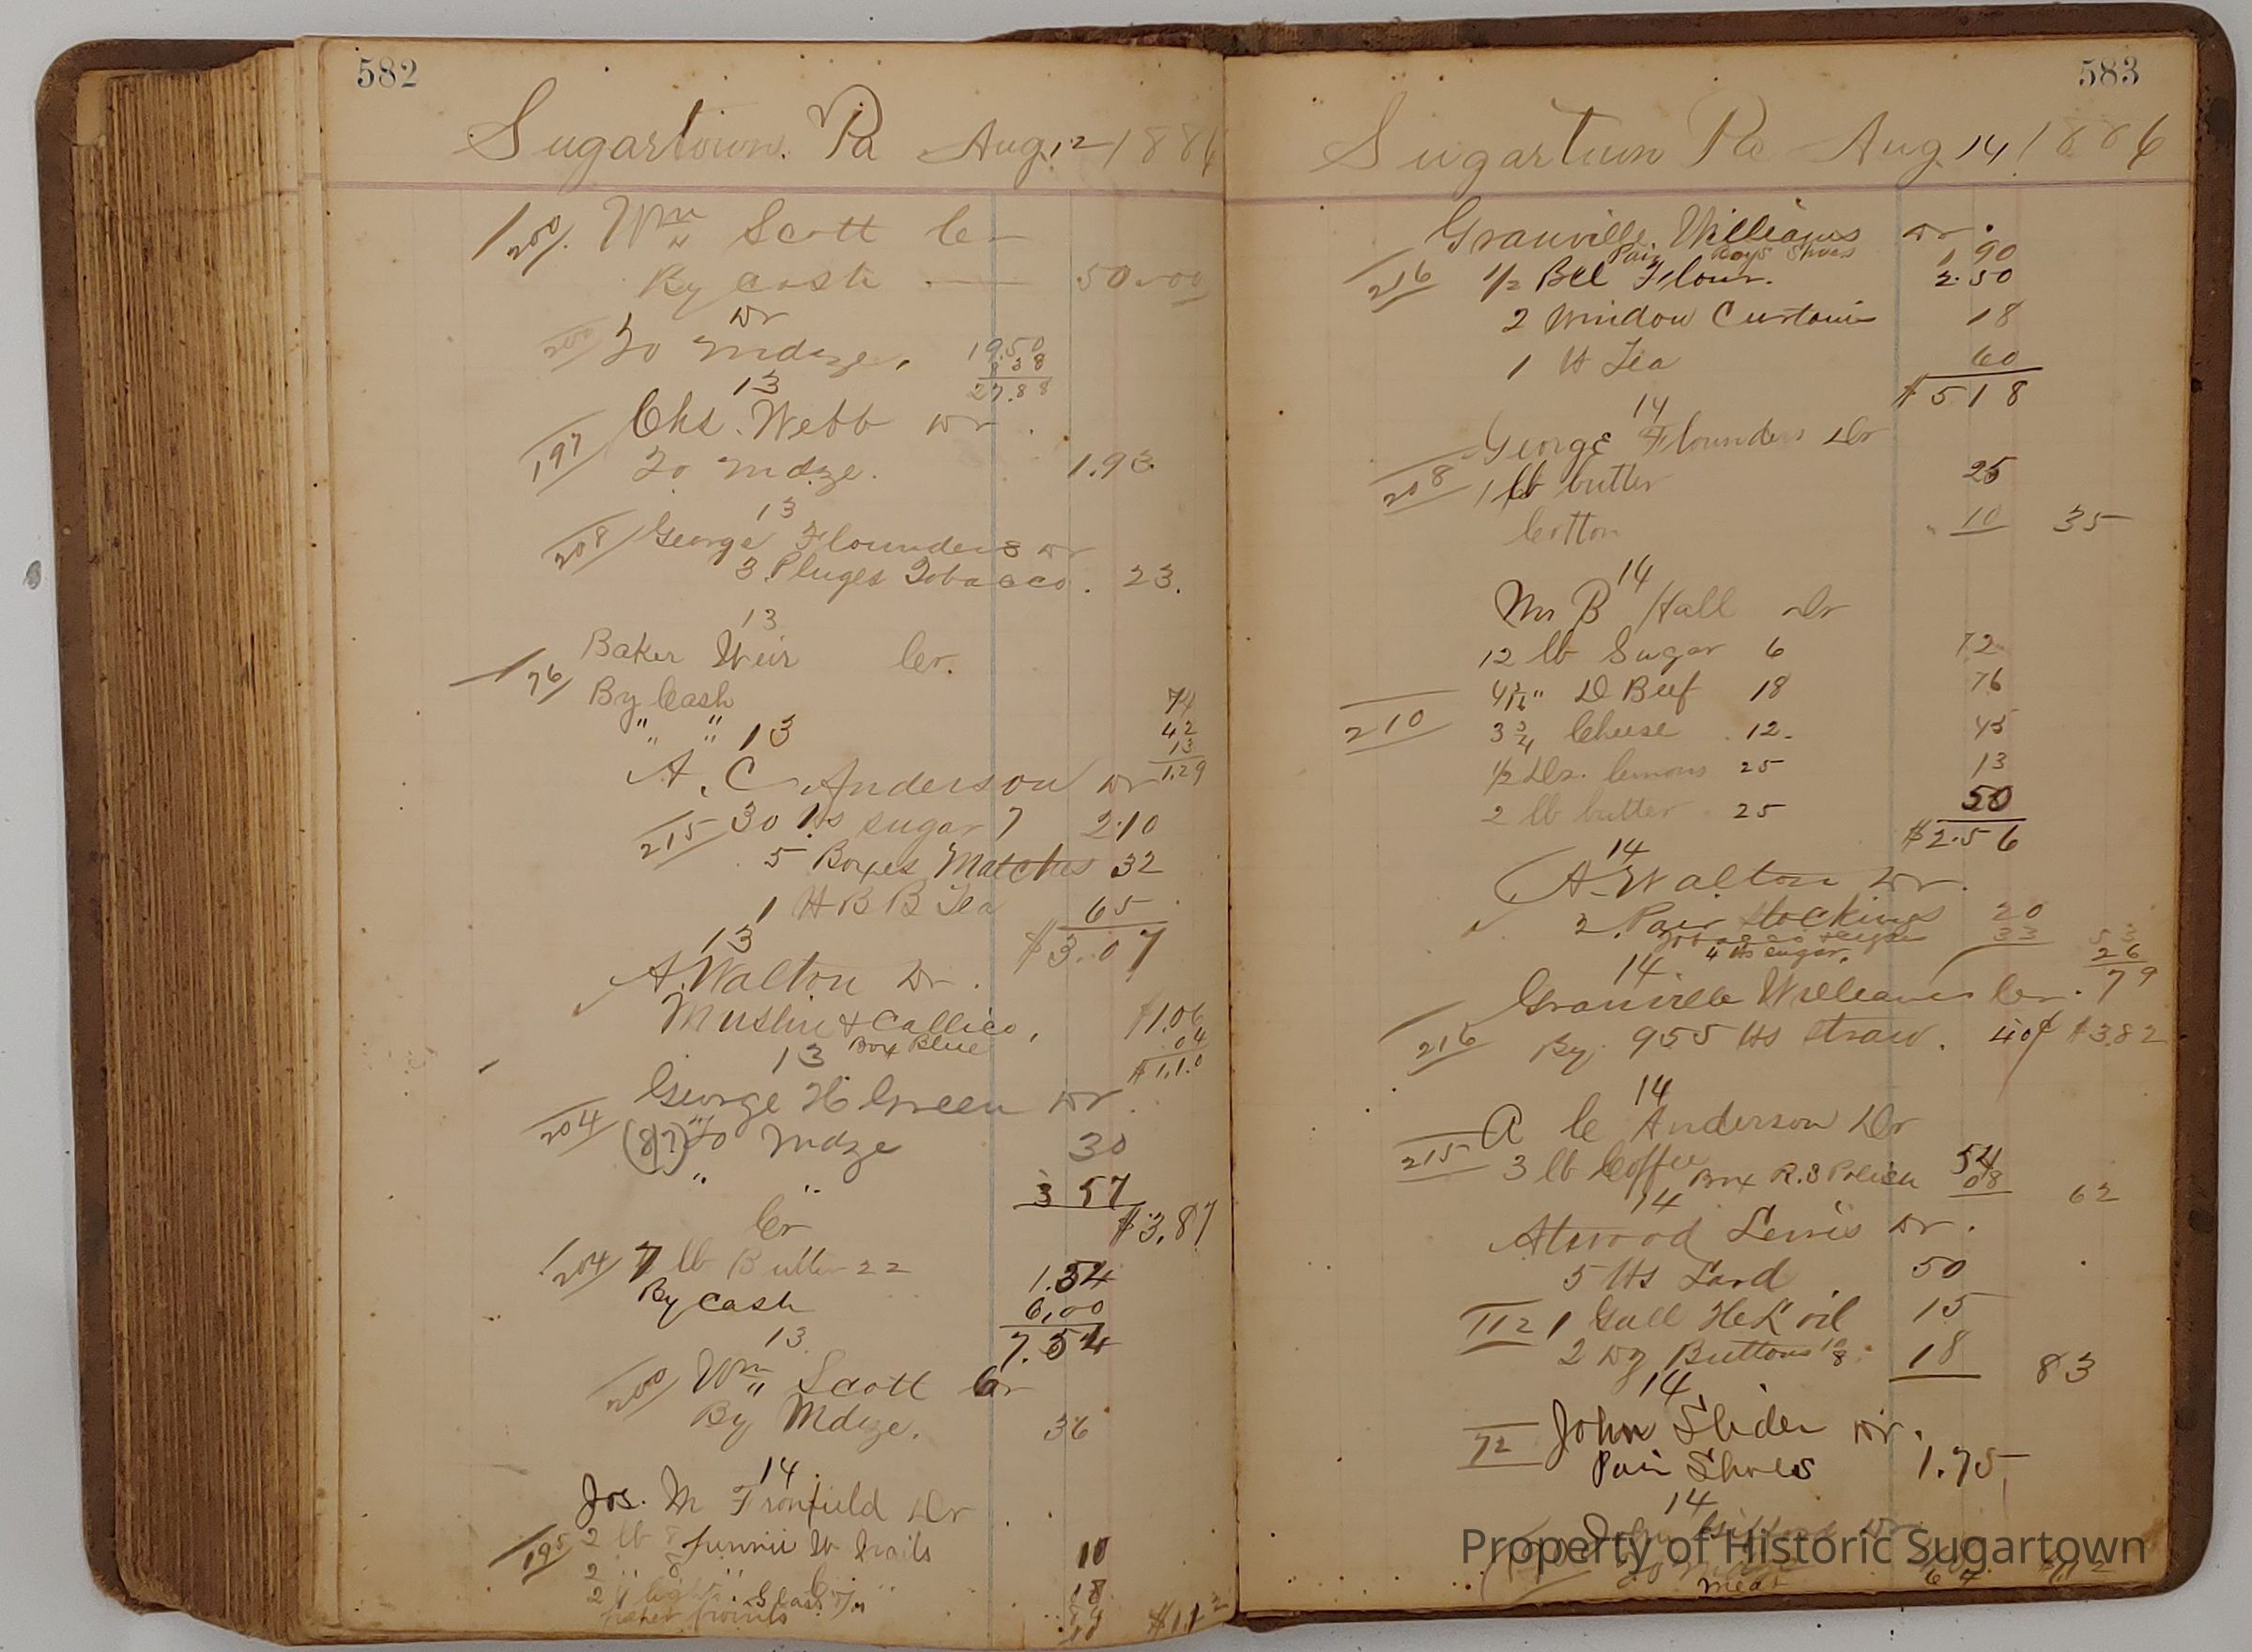 582
Sugartown. Pa Aug. 12 1886
200 Wm Scott Cr
By Cash 50.00
Dr
200 To Mdze. 19.50
8 38
27.88
13
197 Chs. Webb Dr
To Mdze. 1.93
13
208 George Flounders Dr
3 Pluges Tobacco. 23.
13
Baker Weir Cr.
176 By Cash 74
" " 42
13
1.29
13
A. C Anderson Dr
215 30 lbs sugar 7 2.10
5 Boxes Matches 32
1 lb B B Tea 65
$3.07
13
A. Walton Dr.
Muslin & Callico, $1.06
Box Blue 04
$1.10
13
George H Green Dr
204 (87) To Mdze 30
" " 3 57
$3.87
Cr
204 7 lb Butter 22 1.54
By Cash 6.00
7.54
13
200 Wm Scott Cr
By Mdze. 36
14
Jos. M Fronfield Dr
195 2 lb 8 W Nails 10
2 " 8 " "
2 lights Glass 18
paper points
583
Sugartown Pa Aug 14 1886
Granville Williams Dr.
Pair Boys Shoes 1 90
216 1/2 Bbl Flour. 2.50
2 Window Curtains 18
1 lb Tea 60
$5 18
14
George Flounders Dr
208 1 lb butter 25
Cotton 10 35
14
Mr B Hall Dr
12 lb Sugar 6 72
D Beef 18 76
210 3 3/4 Cheese 12. 45
1/2 Dz. lemons 25 13
2 lb butter 25 50
$2.56
14
A. Walton Dr.
2 Pair Stockings 20
Tobacco 33 53
4 lbs sugar. 26
79
14.
Granville Williams Cr.
216 By 955 lbs Straw. 40¢ $3.82
14
A C Anderson Dr
215 3 lb Coffee 54
Box R. S Polish 08 62
14
Atwood Lewis Dr.
5 lbs Lard 50
112 1 Gall Hel oil 15
2 Dz Buttons 10 8 18 83
14
72 John Slider Dr.
Pair Shoes 1.75
14
John Dr
meat
Property of Historic Sugartown